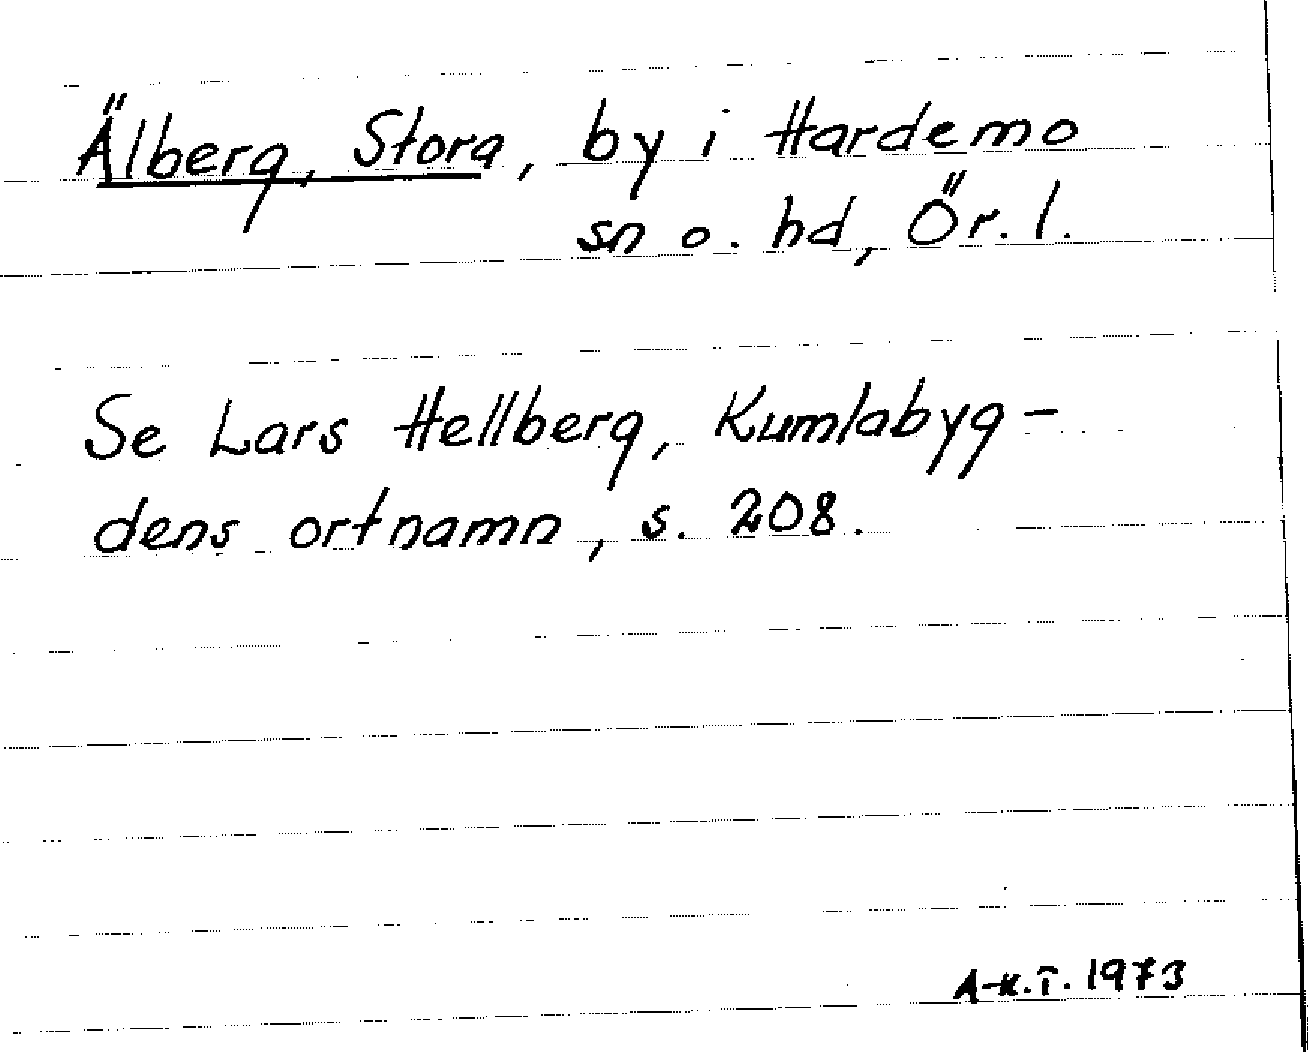 Älberg, Stora, by i Hardemo
sn o. hd, Ör. l.
Se Lars Hellberg, Kumlabyg-
dens ortnamn, s. 208.
A-K.T. 1973